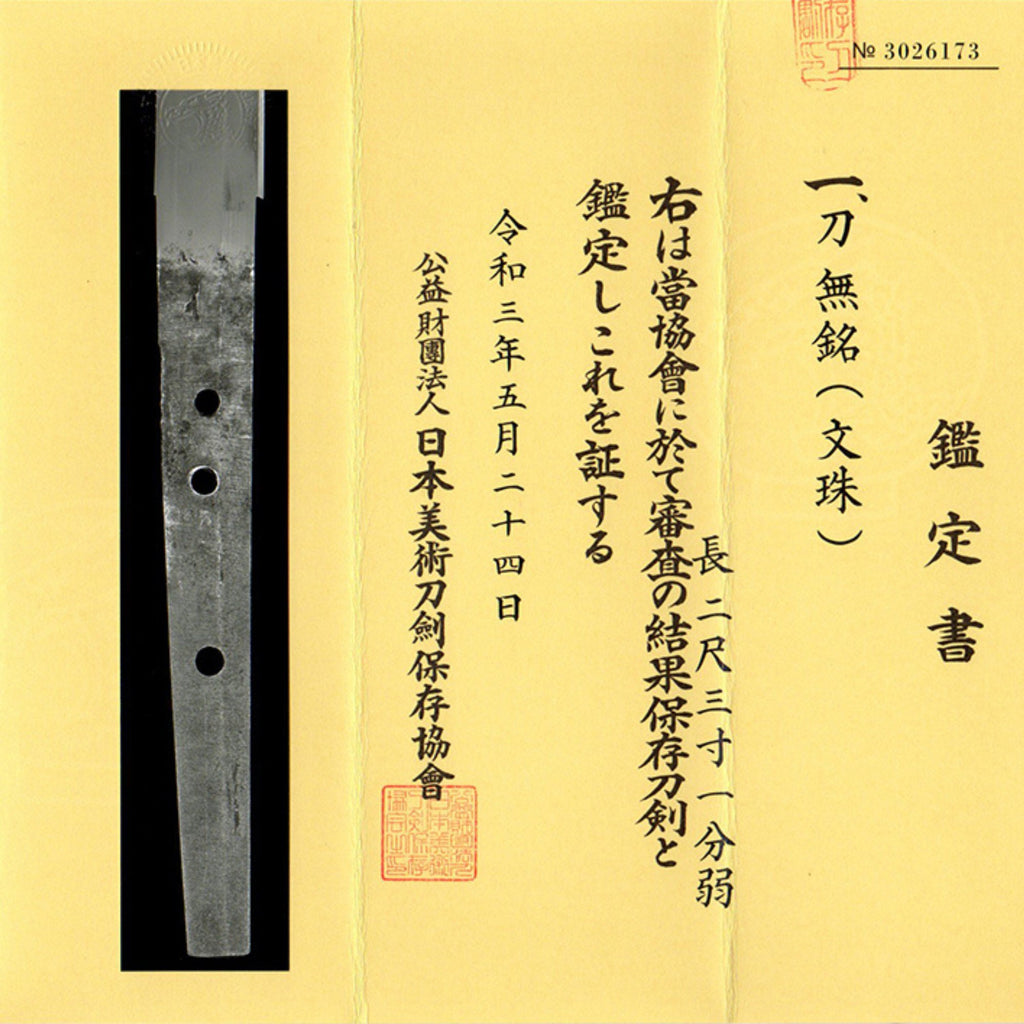 № 3026173
鑑定書
一、刀 無銘(文珠)
長二尺三寸一分弱
右は當協會に於て審査の結果保存刀剣と
鑑定しこれを証する
令和三年五月二十四日
公益財團法人 日本美術刀劍保存協會